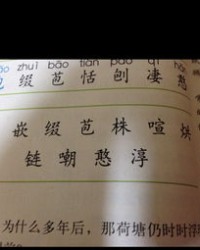 zhuì bāo tián páo qī hān
缀 苞 恬 刨 凄 憨
嵌 缀 苞 株 喧 烘
链 嘲 憨 淳
为什么多年后，那荷塘仍时时浮